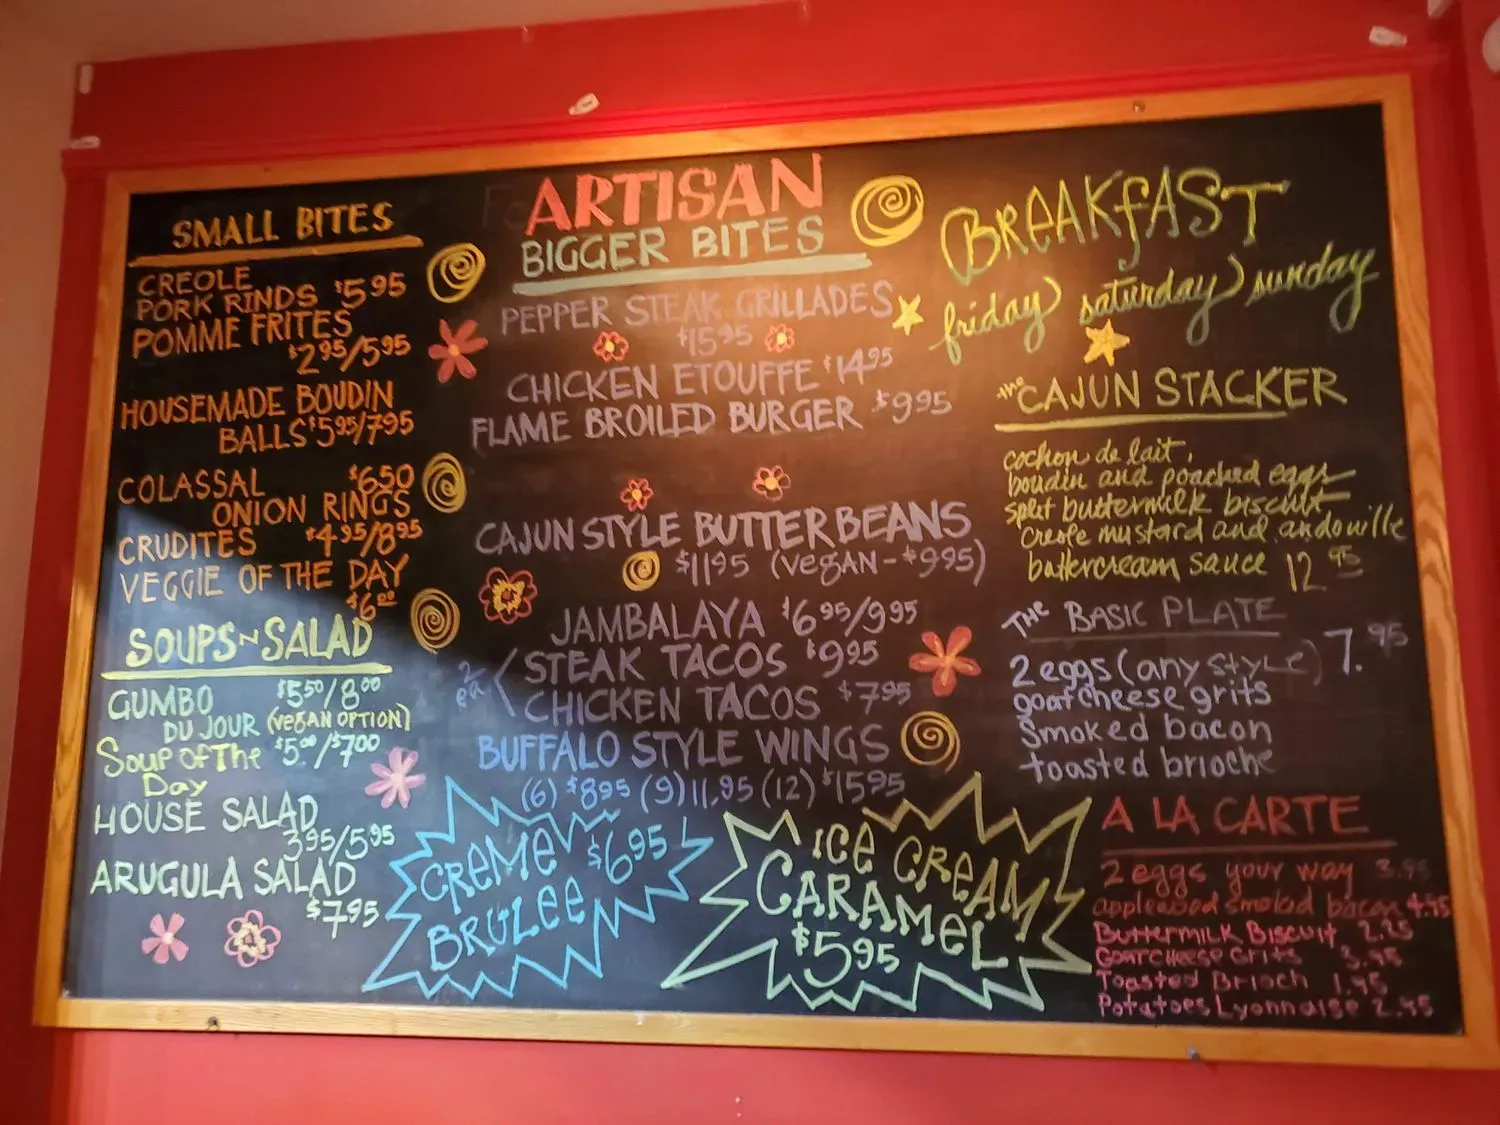 SMALL BITES
CREOLE
PORK RINDS $5.95
POMME FRITES
$2.95/5.95
HOUSEMADE BOUDIN
BALLS $5.95/7.95
COLASSAL $6.50
ONION RINGS
CRUDITES $4.95/8.95
VEGGIE OF THE DAY
$6.00
SOUPS~N~SALAD
GUMBO $5.50/8.00
DU JOUR (VEGAN OPTION)
Soup of The $5.00/$7.00
Day
HOUSE SALAD
3.95/5.95
ARUGULA SALAD
$7.95
ARTISAN
BIGGER BITES
PEPPER STEAK GRILLADES
$15.95
CHICKEN ETOUFFE $14.95
FLAME BROILED BURGER $9.95
CAJUN STYLE BUTTERBEANS
$11.95 (VEGAN - $9.95)
JAMBALAYA $6.95/9.95
2 ea < STEAK TACOS $9.95
CHICKEN TACOS $7.95
BUFFALO STYLE WINGS
(6) $8.95 (9) 11.95 (12) $15.95
CREME $6.95
BRULEE
ICE CREAM
CARAMEL
$5.95
BREAKFAST
friday saturday sunday
the CAJUN STACKER
cochon de lait,
boudin and poached eggs
split buttermilk biscuit
creole mustard and andouille
buttercream sauce 12.95
THE BASIC PLATE
2 eggs (any style) 7.95
goatcheese grits
Smoked bacon
toasted brioche
A LA CARTE
2 eggs your way 3.95
applewood smoked bacon 4.45
Buttermilk Biscuit 2.25
Goatcheese Grits 3.45
Toasted Brioch 1.45
Potatoes Lyonnaise 2.45